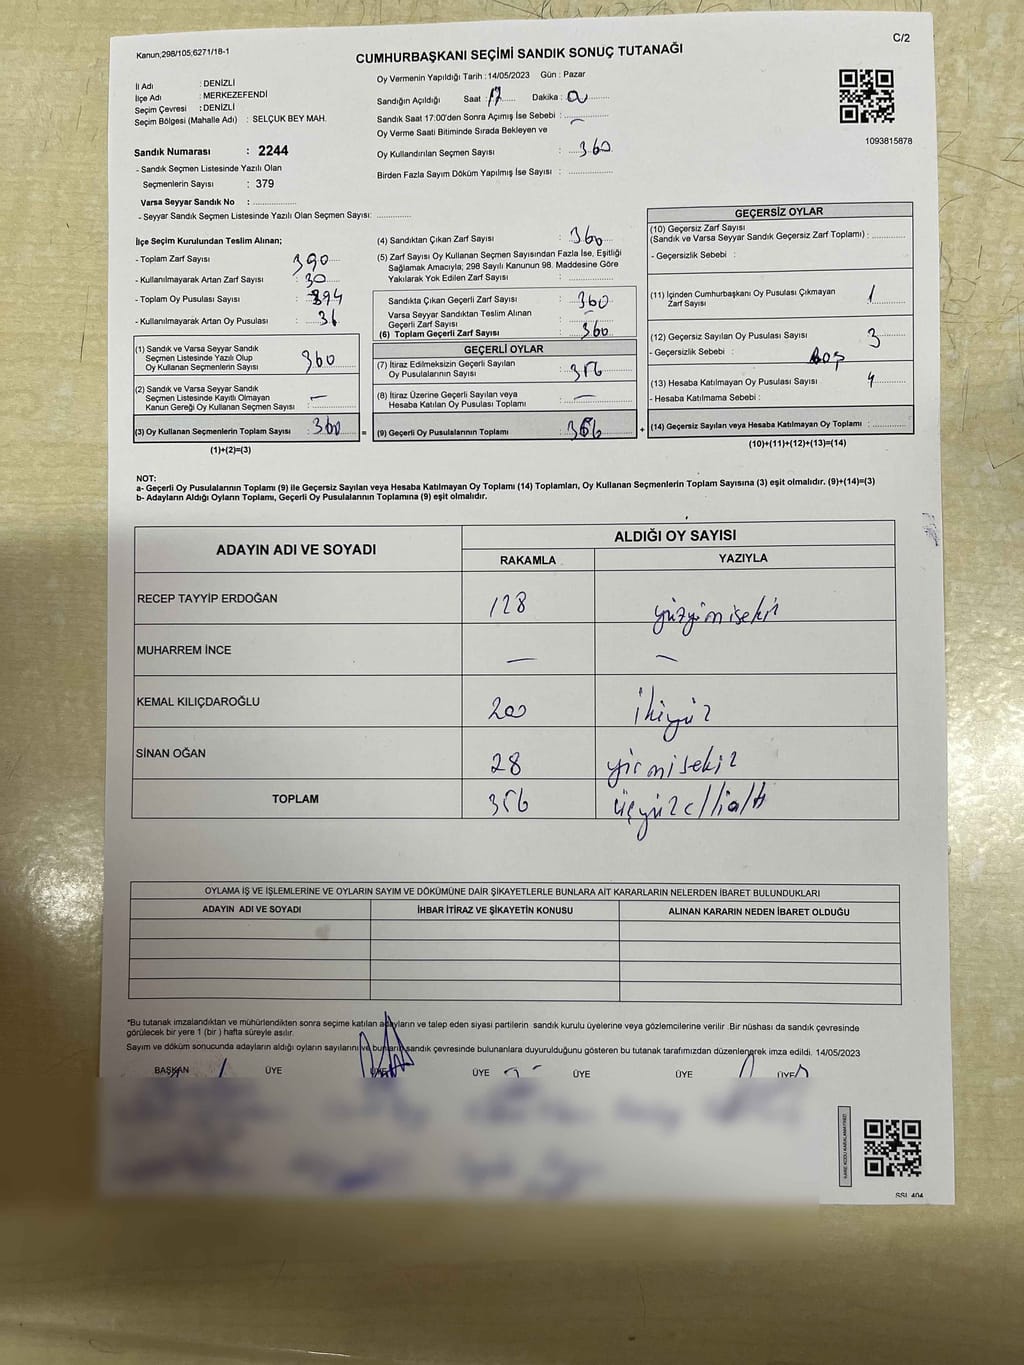 Kanun;298/105,6271/18-1
C/2
CUMHURBAŞKANI SEÇİMİ SANDIK SONUÇ TUTANAĞI
İl Adı : DENİZLİ
İlçe Adı : MERKEZEFENDİ
Seçim Çevresi : DENİZLİ
Seçim Bölgesi (Mahalle Adı) : SELÇUK BEY MAH.
Sandık Numarası : 2244
- Sandık Seçmen Listesinde Yazılı Olan
Seçmenlerin Sayısı : 379
Varsa Seyyar Sandık No :
- Seyyar Sandık Seçmen Listesinde Yazılı Olan Seçmen Sayısı:
Oy Vermenin Yapıldığı Tarih : 14/05/2023 Gün : Pazar
Sandığın Açıldığı Saat : 17 Dakika : 00
Sandık Saat 17:00'den Sonra Açımış İse Sebebi : —
Oy Verme Saati Bitiminde Sırada Bekleyen ve
Oy Kullandırılan Seçmen Sayısı : 360
Birden Fazla Sayım Döküm Yapılmış İse Sayısı :
1093815878
İlçe Seçim Kurulundan Teslim Alınan;
- Toplam Zarf Sayısı : 390
- Kullanılmayarak Artan Zarf Sayısı : 30
- Toplam Oy Pusulası Sayısı : 394
- Kullanılmayarak Artan Oy Pusulası : 36
(1) Sandık ve Varsa Seyyar Sandık
Seçmen Listesinde Yazılı Olup
Oy Kullanan Seçmenlerin Sayısı : 360
(2) Sandık ve Varsa Seyyar Sandık
Seçmen Listesinde Kayıtlı Olmayan
Kanun Gereği Oy Kullanan Seçmen Sayısı : —
(3) Oy Kullanan Seçmenlerin Toplam Sayısı : 360
(1)+(2)=(3)
=
(4) Sandıktan Çıkan Zarf Sayısı : 360
(5) Zarf Sayısı Oy Kullanan Seçmen Sayısından Fazla İse, Eşitliği
Sağlamak Amacıyla; 298 Sayılı Kanunun 98. Maddesine Göre
Yakılarak Yok Edilen Zarf Sayısı :
Sandıkta Çıkan Geçerli Zarf Sayısı : 360
Varsa Seyyar Sandıktan Teslim Alınan
Geçerli Zarf Sayısı : —
(6) Toplam Geçerli Zarf Sayısı : 360
GEÇERLİ OYLAR
(7) İtiraz Edilmeksizin Geçerli Sayılan
Oy Pusulalarının Sayısı : 356
(8) İtiraz Üzerine Geçerli Sayılan veya
Hesaba Katılan Oy Pusulası Toplamı : —
(9) Geçerli Oy Pusulalarının Toplamı : 356
+
GEÇERSİZ OYLAR
(10) Geçersiz Zarf Sayısı
(Sandık ve Varsa Seyyar Sandık Geçersiz Zarf Toplamı) :
- Geçersizlik Sebebi :
(11) İçinden Cumhurbaşkanı Oy Pusulası Çıkmayan
Zarf Sayısı : 1
(12) Geçersiz Sayılan Oy Pusulası Sayısı : 3
- Geçersizlik Sebebi : Boş
(13) Hesaba Katılmayan Oy Pusulası Sayısı : 4
- Hesaba Katılmama Sebebi :
(14) Geçersiz Sayılan veya Hesaba Katılmayan Oy Toplamı :
(10)+(11)+(12)+(13)=(14)
NOT:
a- Geçerli Oy Pusulalarının Toplamı (9) ile Geçersiz Sayılan veya Hesaba Katılmayan Oy Toplamı (14) Toplamları, Oy Kullanan Seçmenlerin Toplam Sayısına (3) eşit olmalıdır. (9)+(14)=(3)
b- Adayların Aldığı Oyların Toplamı, Geçerli Oy Pusulalarının Toplamına (9) eşit olmalıdır.
ADAYIN ADI VE SOYADI ALDIĞI OY SAYISI
RAKAMLA YAZIYLA
RECEP TAYYİP ERDOĞAN 128 yüzyirmisekiz
MUHARREM İNCE — —
KEMAL KILIÇDAROĞLU 200 ikiyüz
SİNAN OĞAN 28 yirmisekiz
TOPLAM 356 üçyüzellialtı
OYLAMA İŞ VE İŞLEMLERİNE VE OYLARIN SAYIM VE DÖKÜMÜNE DAİR ŞİKAYETLERLE BUNLARA AİT KARARLARIN NELERDEN İBARET BULUNDUKLARI
ADAYIN ADI VE SOYADI İHBAR İTİRAZ VE ŞİKAYETİN KONUSU ALINAN KARARIN NEDEN İBARET OLDUĞU
*Bu tutanak imzalandıktan ve mühürlendikten sonra seçime katılan adayların ve talep eden siyasi partilerin sandık kurulu üyelerine veya gözlemcilerine verilir .Bir nüshası da sandık çevresinde
görülecek bir yere 1 (bir ) hafta süreyle asılır.
Sayım ve döküm sonucunda adayların aldığı oyların sayılarını ve bunların sandık çevresinde bulunanlara duyurulduğunu gösteren bu tutanak tarafımızdan düzenlenerek imza edildi. 14/05/2023
BAŞKAN ÜYE ÜYE ÜYE ÜYE ÜYE ÜYE
SSI_404